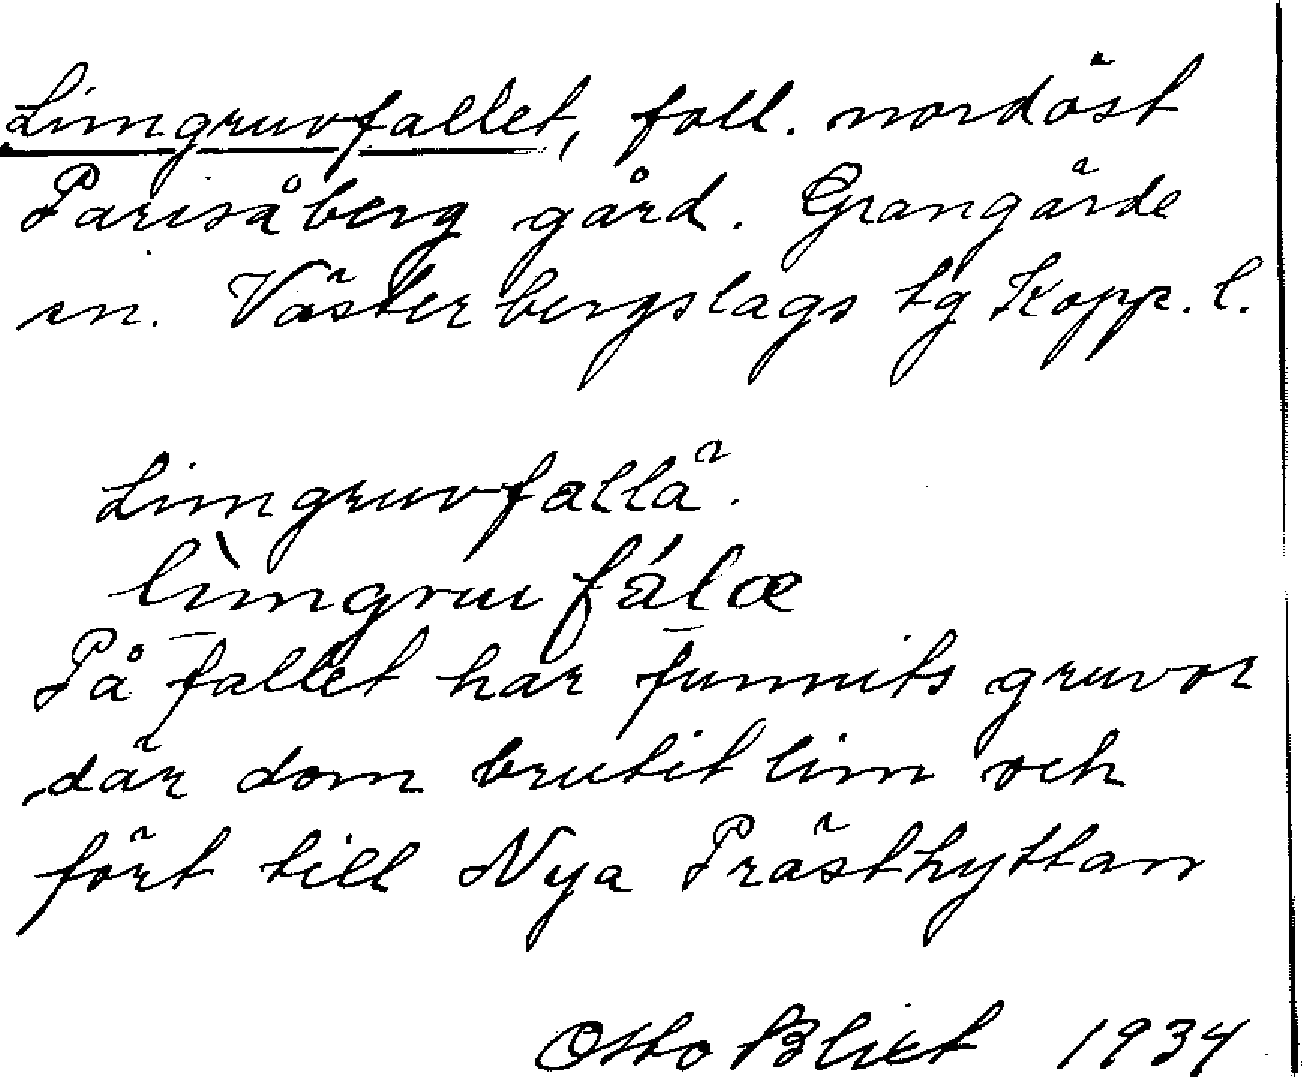 Limgruvfallet, foll. nordöst
Parisåberg gård. Grangärde
sn. Västerbergslags tg Kopp. l.
Limgruvfallä.
lìmgruu fálæ
På fallet har funnits gruvor
där dom brutit lim och
fört till Nya Prästhyttan
Otto Blixt 1934